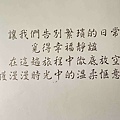 讓我們告別繁瑣的日常
覓得幸福靜謐
在這趟旅程中徹底放空
獲漫漫時光中的溫柔愜意